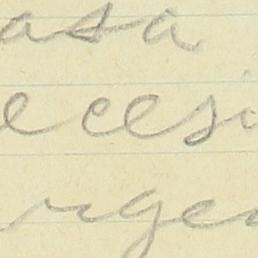 asa
ecesi
rgen